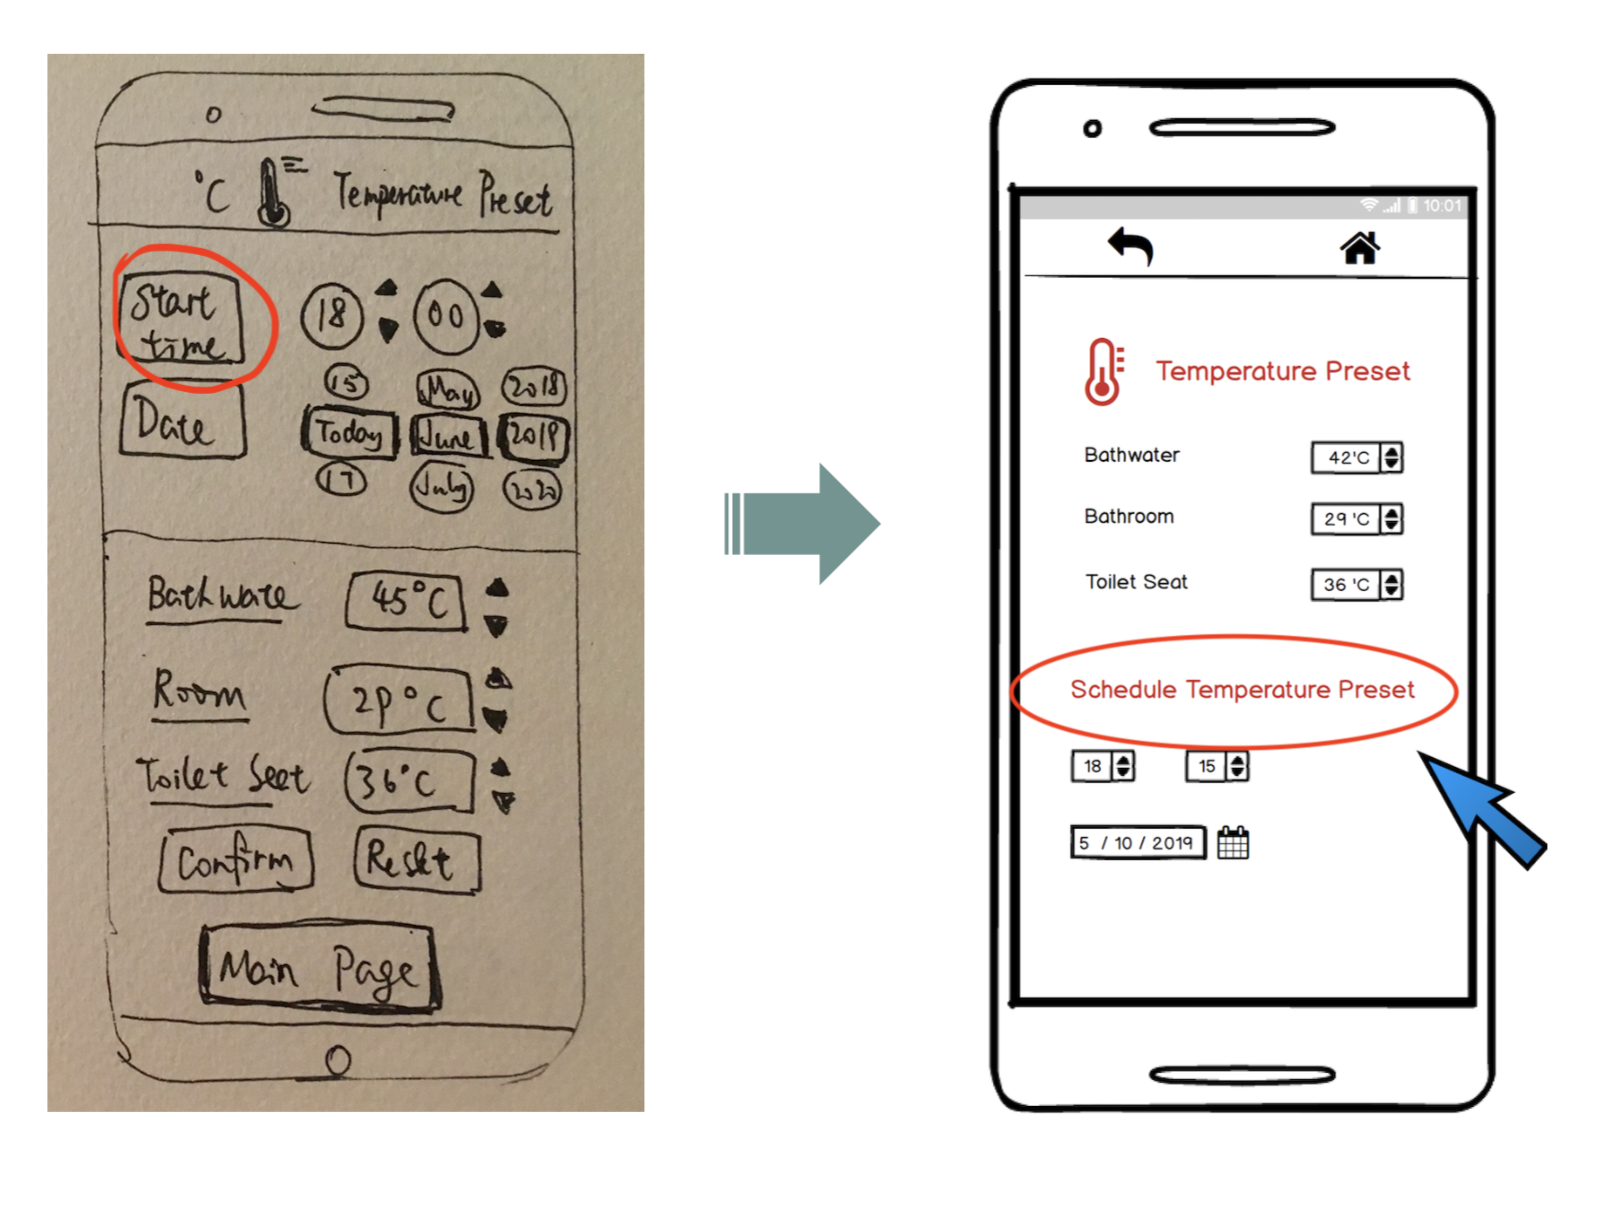 °C Temperature Preset
Start
time
18 00
15 May 2018
Date Today June 2019
17 July 2020
Bathwate 45°C
Room 29°C
Toilet Seat 36°C
Confirm Reset
Main Page
10:01
Temperature Preset
Bathwater 42'C
Bathroom 29 'C
Toilet Seat 36 'C
Schedule Temperature Preset
18 15
5 / 10 / 2019